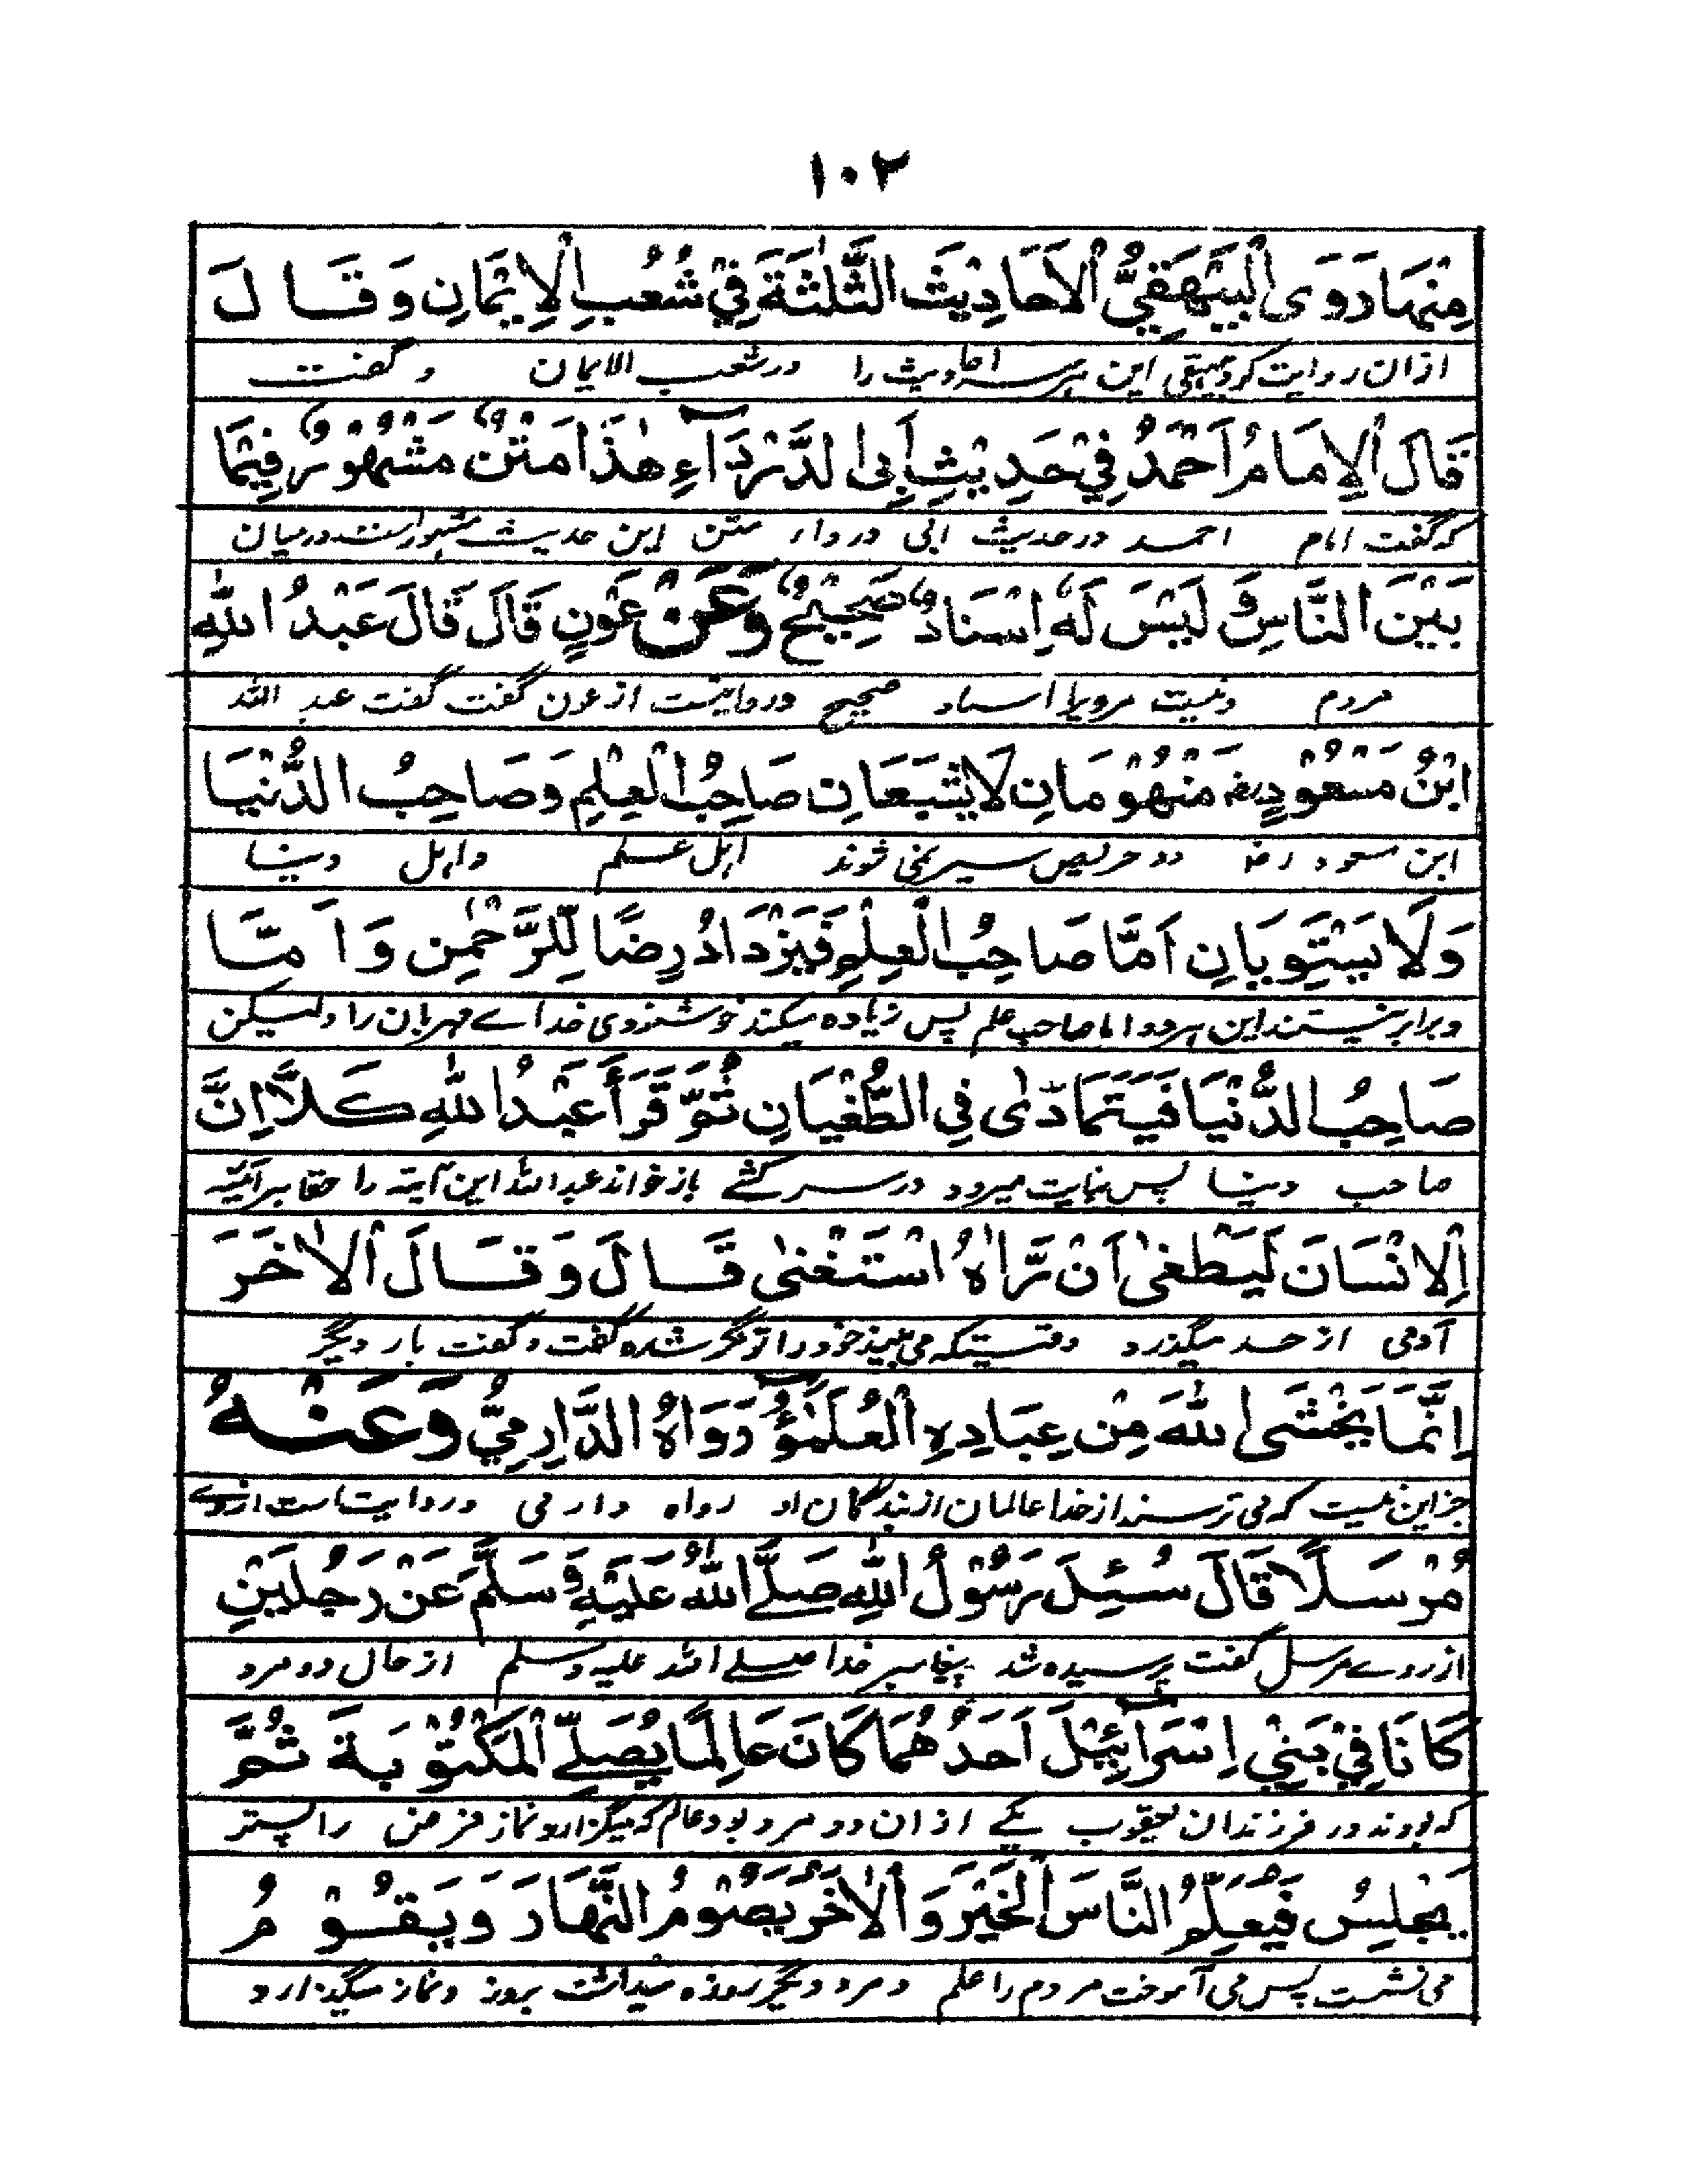 ١٠٢
مِنْهَا رَوَى الْبَيْهَقِيُّ الْاَحَادِيْثَ الثَّلٰثَةَ فِيْ شُعَبِ الْاِيْمَانِ وَقَالَ
ازان روایت کرد بیهقی این هر سه احادیث را در شعب الایمان و گفت
قَالَ الْاِمَامُ اَحْمَدُ فِيْ حَدِيْثِ اَبِى الدَّرْدَآءِ هٰذَا مَتْنٌ مَشْهُوْرٌ فِيْمَا
که گفت امام احمد در حدیث ابی دردار متن این حدیث مشهور است در میان
بَيْنَ النَّاسِ وَ لَيْسَ لَهٗ اِسْنَادٌ صَحِيْحٌ وَعَنْ عَوْنٍ قَالَ قَالَ عَبْدُ اللّٰهِ
مردم و نیست مرو یرا اسناد صحیح و روایتست از عون گفت گفت عبد الله
ابْنُ مَسْعُوْدٍ رضـ مَنْهُوْمَانِ لَا يَشْبَعَانِ صَاحِبُ الْعِلْمِ وَصَاحِبُ الدُّنْيَا
ابن مسعود رضـ دو حریص سیر نمی شوند اهل علم و اهل دنیا
وَلَا يَسْتَوِيَانِ اَمَّا صَاحِبُ الْعِلْمِ فَيَزْدَادُ رِضًا لِّلرَّحْمٰنِ وَاَمَّا
و برابر نیستند این هر دو اما صاحب علم پس زیاده میکند خوشنودی خداے مهربان را و لیکن
صَاحِبُ الدُّنْيَا فَيَتَمَادٰى فِى الطُّغْيَانِ ثُمَّ قَرَأَ عَبْدُ اللّٰهِ كَلَّا اِنَّ
صاحب دنیا پس نهایت میرود در سر کشے باز خواند عبد الله این آیته را حقا هر آئینه
الْاِنْسَانَ لَيَطْغٰى اَنْ رَّاٰهُ اسْتَغْنٰى قَالَ وَقَالَ الْاٰخَرَ
آدمی از حد میگذرد وقتیکه می بیند خود را تونگر شده گفت و گفت بار دیگر
اِنَّمَا يَخْشَى اللّٰهَ مِنْ عِبَادِهِ الْعُلَمٰٓؤُ رَوَاهُ الدَّارِمِيُّ وَعَنْهُ
جز این نیست که می ترسند از خدا عالمان از بندگان او رواه دارمی و روایت است ازوے
مُرْسَلًا قَالَ سُئِلَ رَسُوْلُ اللّٰهِ صَلَّے اللّٰهُ عَلَيْهِ وَسَلَّمَ عَنْ رَجُلَيْنِ
از روے مرسل گفت پرسیده شد پیغامبر خدا صلے الله علیه و سلم از حال دو مرد
كَانَا فِيْ بَنِيْ اِسْرَآئِيْلَ اَحَدُهُمَا كَانَ عَالِمًا يُصَلِّے الْمَكْتُوْبَةَ ثُمَّ
که بودند در فرزندان یعقوب یکے ازان دو مرد بود عالم که میگزارد نماز فرض را پستر
يَجْلِسُ فَيُعَلِّمُ النَّاسَ الْخَيْرَ وَ الْاٰخَرُ يَصُوْمُ النَّهَارَ وَيَقُوْمُ
می نشست پس می آموخت مردم را علم و مرد دیگر روزه میداشت بروز و نماز میگذارد